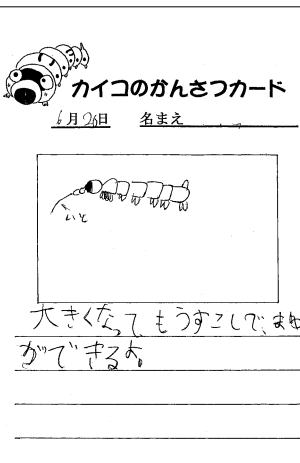 カイコのかんさつカード
6月26日 名まえ
いと
大きくなって、もうすこしで、まゆ
ができるよ。